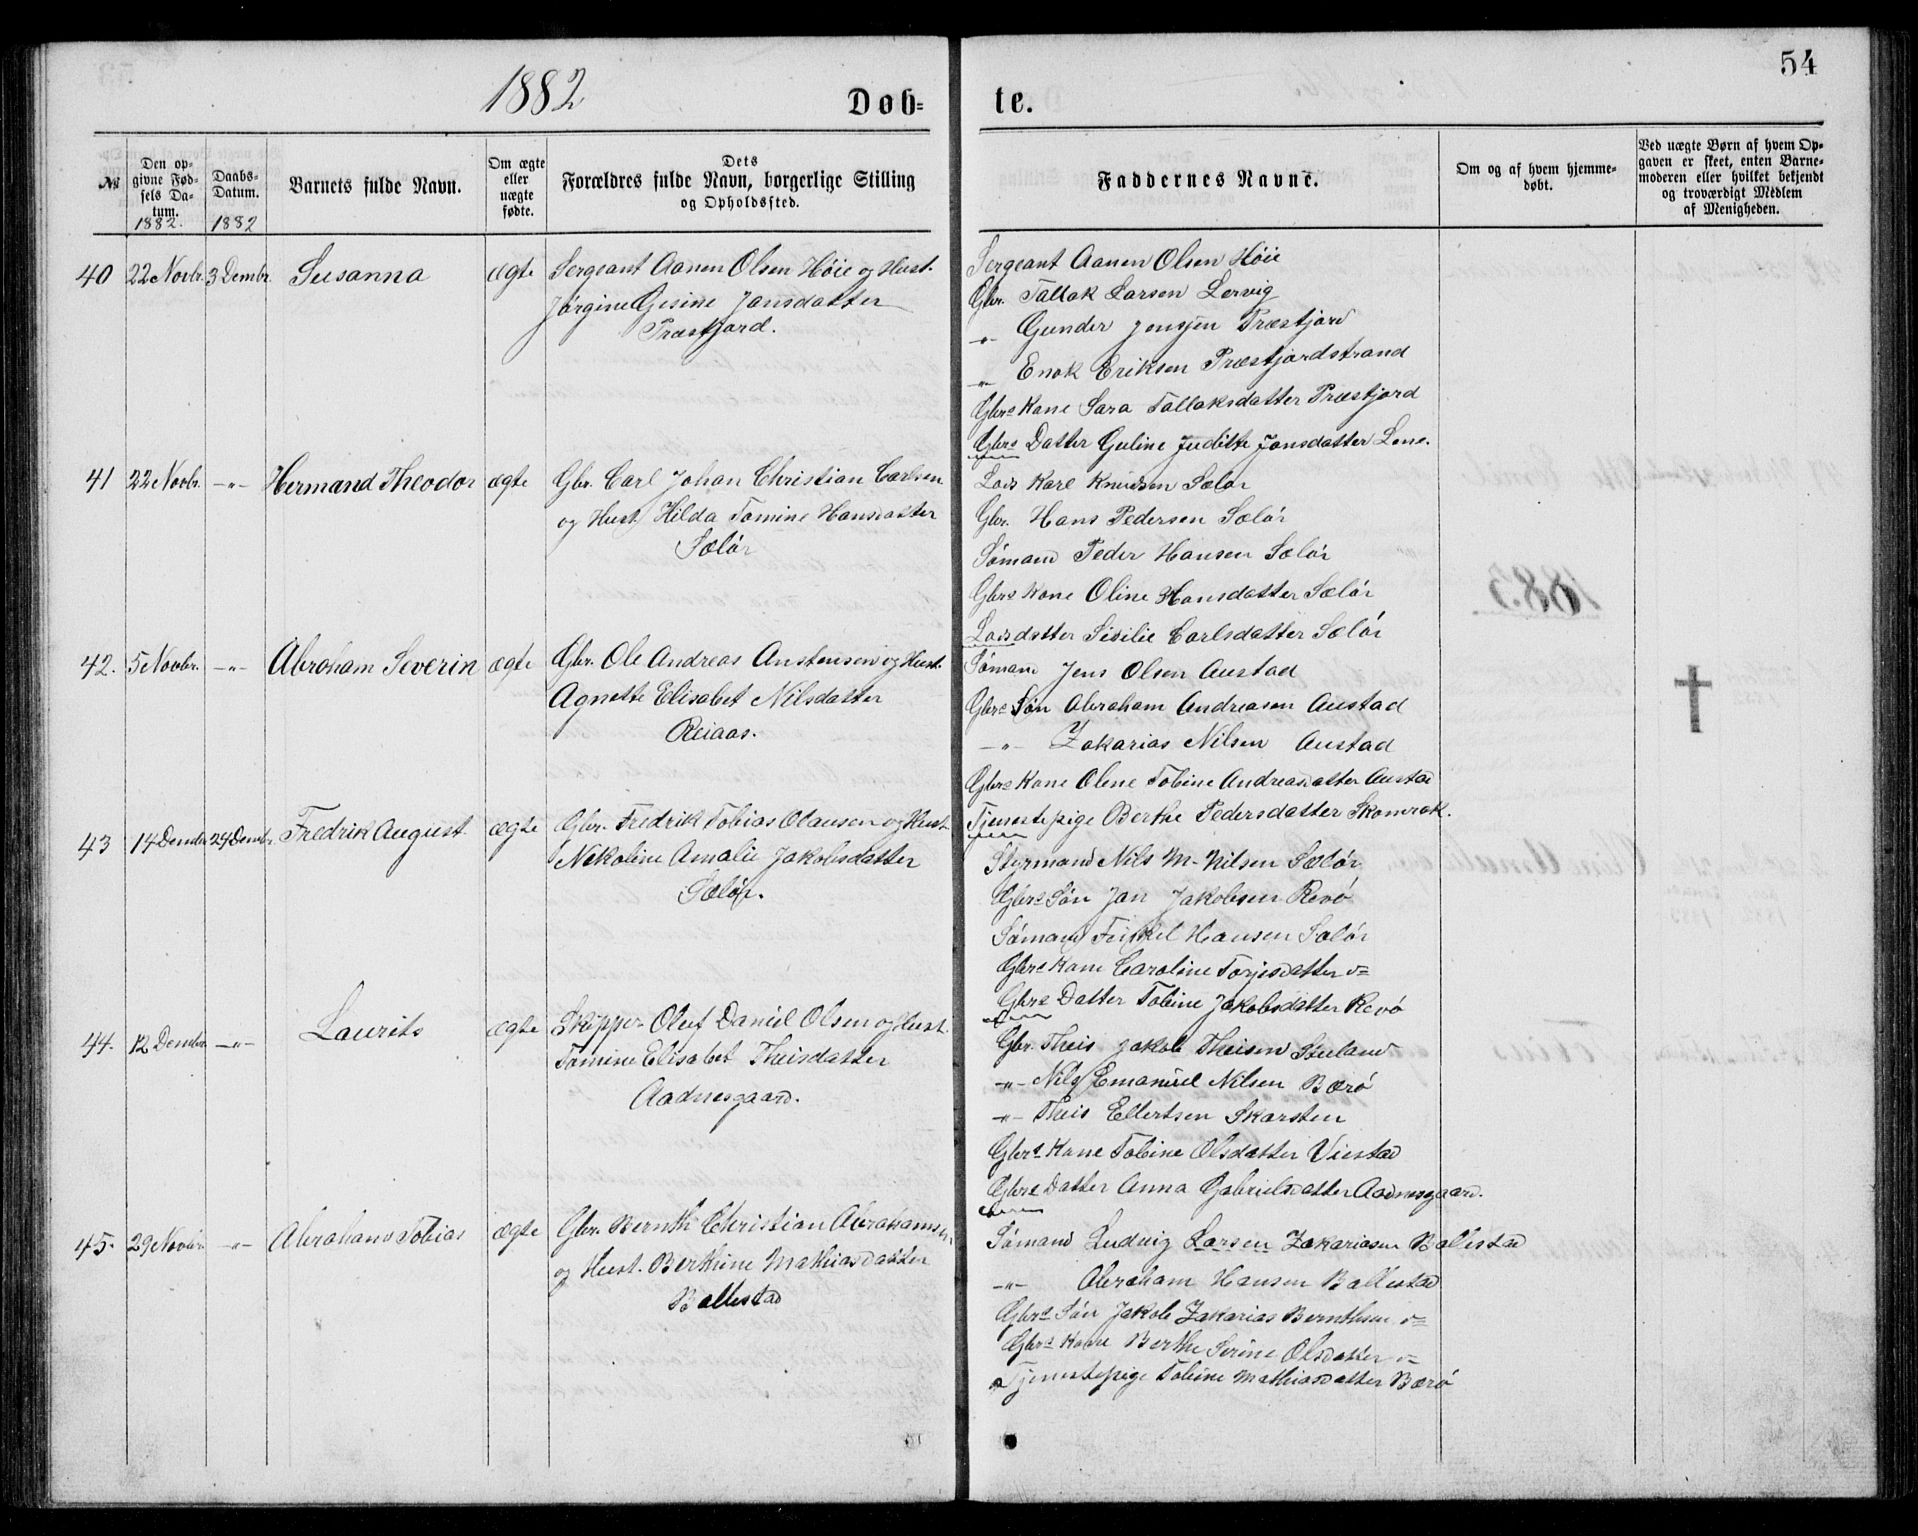 1882
Døb-
№
Den op-
givne Fød-
sels Da-
tum.
1882.
Daabs-
Datum.
1882
Barnets fulde Navn.
Om ægte
eller
uægte
fødte.
Dets
Forældres fulde Navn, borgerlige Stilling
og Opholdssted.
40 22 Novbr. 3 Dembr. Susanna ægte Sergeant Aanen Olsen Høie og Hust.
Jørgine Gesine Jansdatter
Præstfjord.
41 22 Novbr. -"- Hermand Theodor ægte Gbr. Carl Johan Christian Carlsen
og Hust. Hilda Tomine Hansdatter
Sælør
42. 5 Novbr. -"- Abraham Severin ægte Gbr. Ole Andreas Anstensen og Hust.
Agnette Elisabet Nilsdatter
Reiaas.
43 14 Dembr. 24 Dembr. Fredrik August ægte Gbr. Fredrik Tobias Olausen og Hust.
Nikoline Amalie Jakobsdatter
Sælør.
44. 12 Dembr. -"- Laurits ægte Skipper Oluf Daniel Olsen og Hust.
Tomine Elisabet Theisdatter
Aadnesgaard.
45. 29 Novbr. -"- Abraham Tobias ægte Gbr. Bernth Christian Abrahamsen
og Hust. Berthine Mathiasdatter
Ballestad
54
te.
Faddernes Navne.
Om og af hvem hjemme-
døbt.
Ved uægte Børn af hvem Op-
gaven er skeet, enten Barne-
moderen eller hvilket bekjendt
og troværdigt Medlem
af Menigheden.
Sergeant Aanen Olsen Høie
Gbr. Tallak Larsen Lervig
-"- Gunder Jensen Præstfjord
-"- Enok Eriksen Præstfjordstrand
Gbrs Kone Sara Tallaksdatter Præstfjord
Gbrs Datter Guline Juditte Jansdatter Lene.
Lods Karl Knudsen Sælør
Gbr. Hans Pedersen Sælør
Sømand Peder Hansen Sælør
Gbrs Kone Oline Hansdatter Sælør
Lodsdatter Sisilie Carlsdatter Sælør
Sømand Jens Olsen Austad
Gbrs Søn Abraham Andreasen Austad
-"- Zakarias Nilsen Austad
Gbrs Kone Olene Tobine Andreasdatter Austad
Tjenestepige Berthe Pedersdatter Skomrak.
Styrmand Nils M. Nilsen Sælør
Gbrs Søn Jan Jakobsen Revø
Sømand Hansen Sælør
Gbrs Kone Caroline Torjesdatter do
Gbrs Datter Tobine Jakobsdatter Revø
Gbr. Theis Jakob Theisen Steeland
-"- Nils Emanuel Nilsen Bærø
-"- Theis Ellertsen Skarsten
Gbrs Kone Tobine Olsdatter Viestad
Gbrs Datter Anna Gabrielsdatter Aadnesgaard.
Sømand Ludvig Larsen Zakariasen Ballestad
-"- Abraham Hansen Ballestad
Gbrs Søn Jakob Zakarias Bernthsen do
Gbrs Kone Berthe Serine Olsdatter do
Tjenestepige Tobine Mathiasdatter Bærø